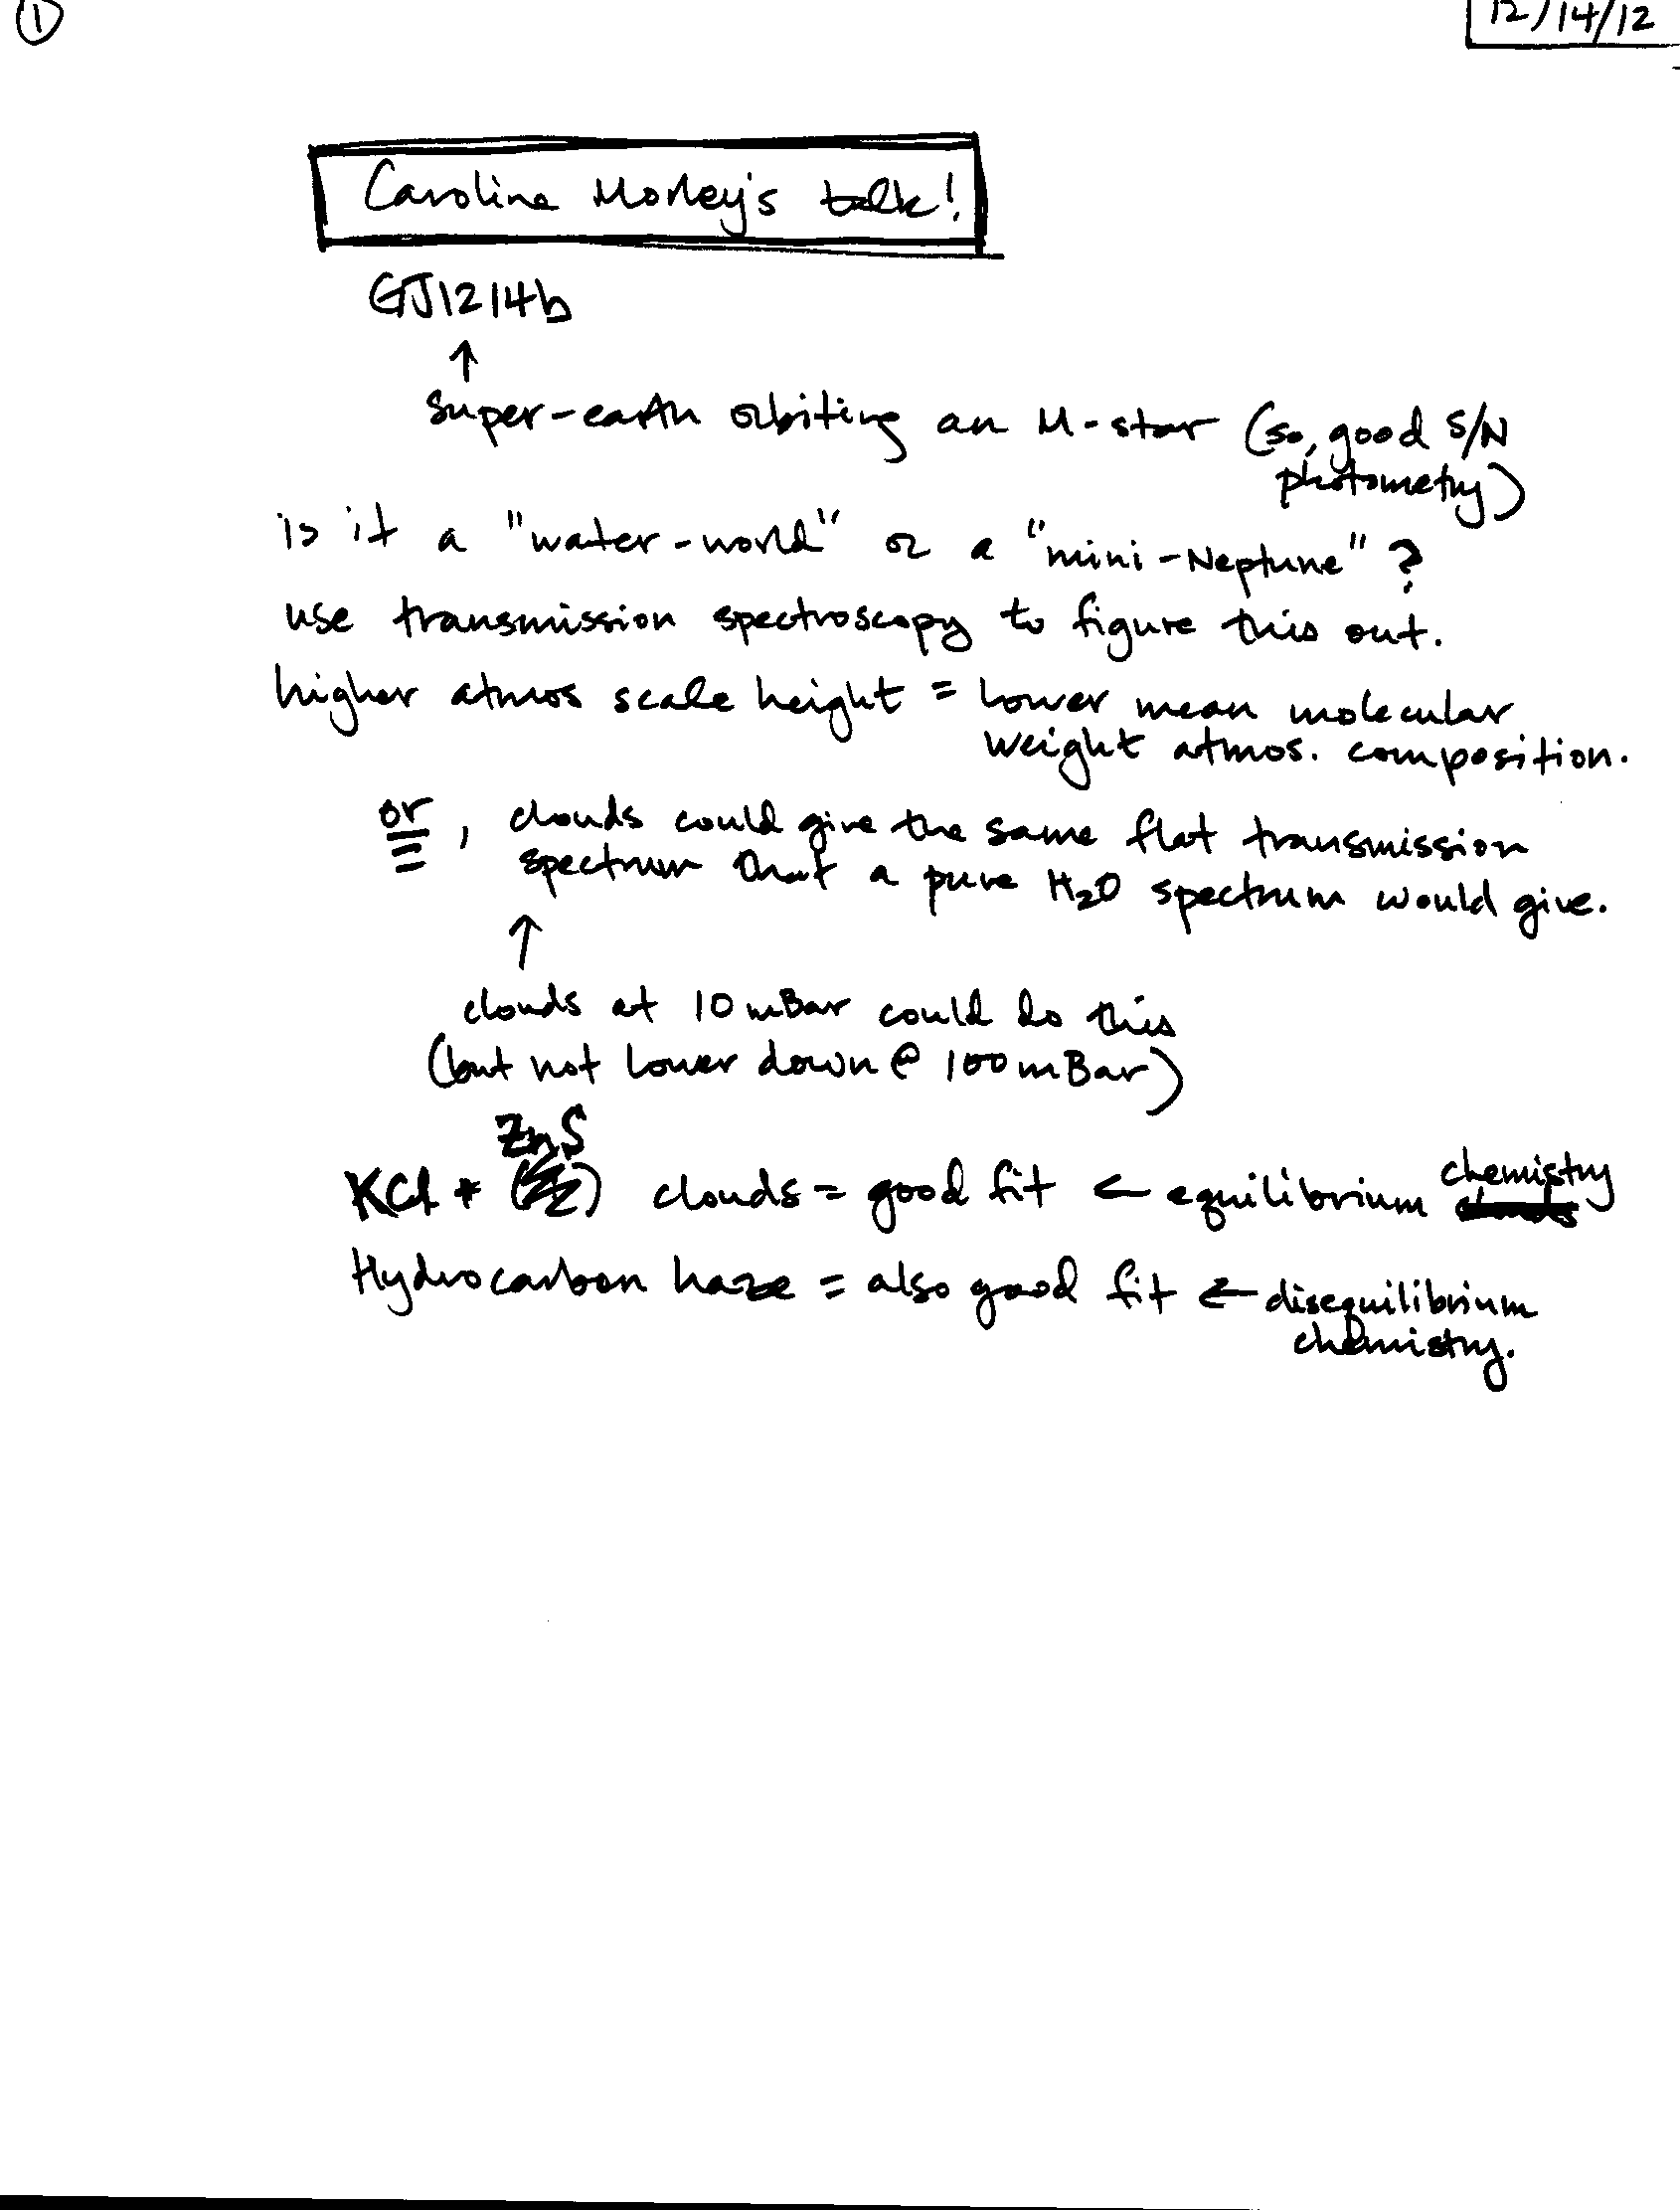 ①
12/14/12
Caroline Morley's talk!
GJ1214b
↑
super-earth orbiting an M-star (so, good S/N
photometry)
is it a "water-world" or a "mini-Neptune"?
use transmission spectroscopy to figure this out.
higher atmos scale height = lower mean molecular
weight atmos. composition.
or, clouds could give the same flat transmission
spectrum that a pure H₂O spectrum would give.
↑
clouds at 10 mBar could do this
(but not lower down @ 100 mBar)
ZnS
KCl * ( ) clouds = good fit ← equilibrium chemistry
Hydrocarbon haze = also good fit ← disequilibrium
chemistry.